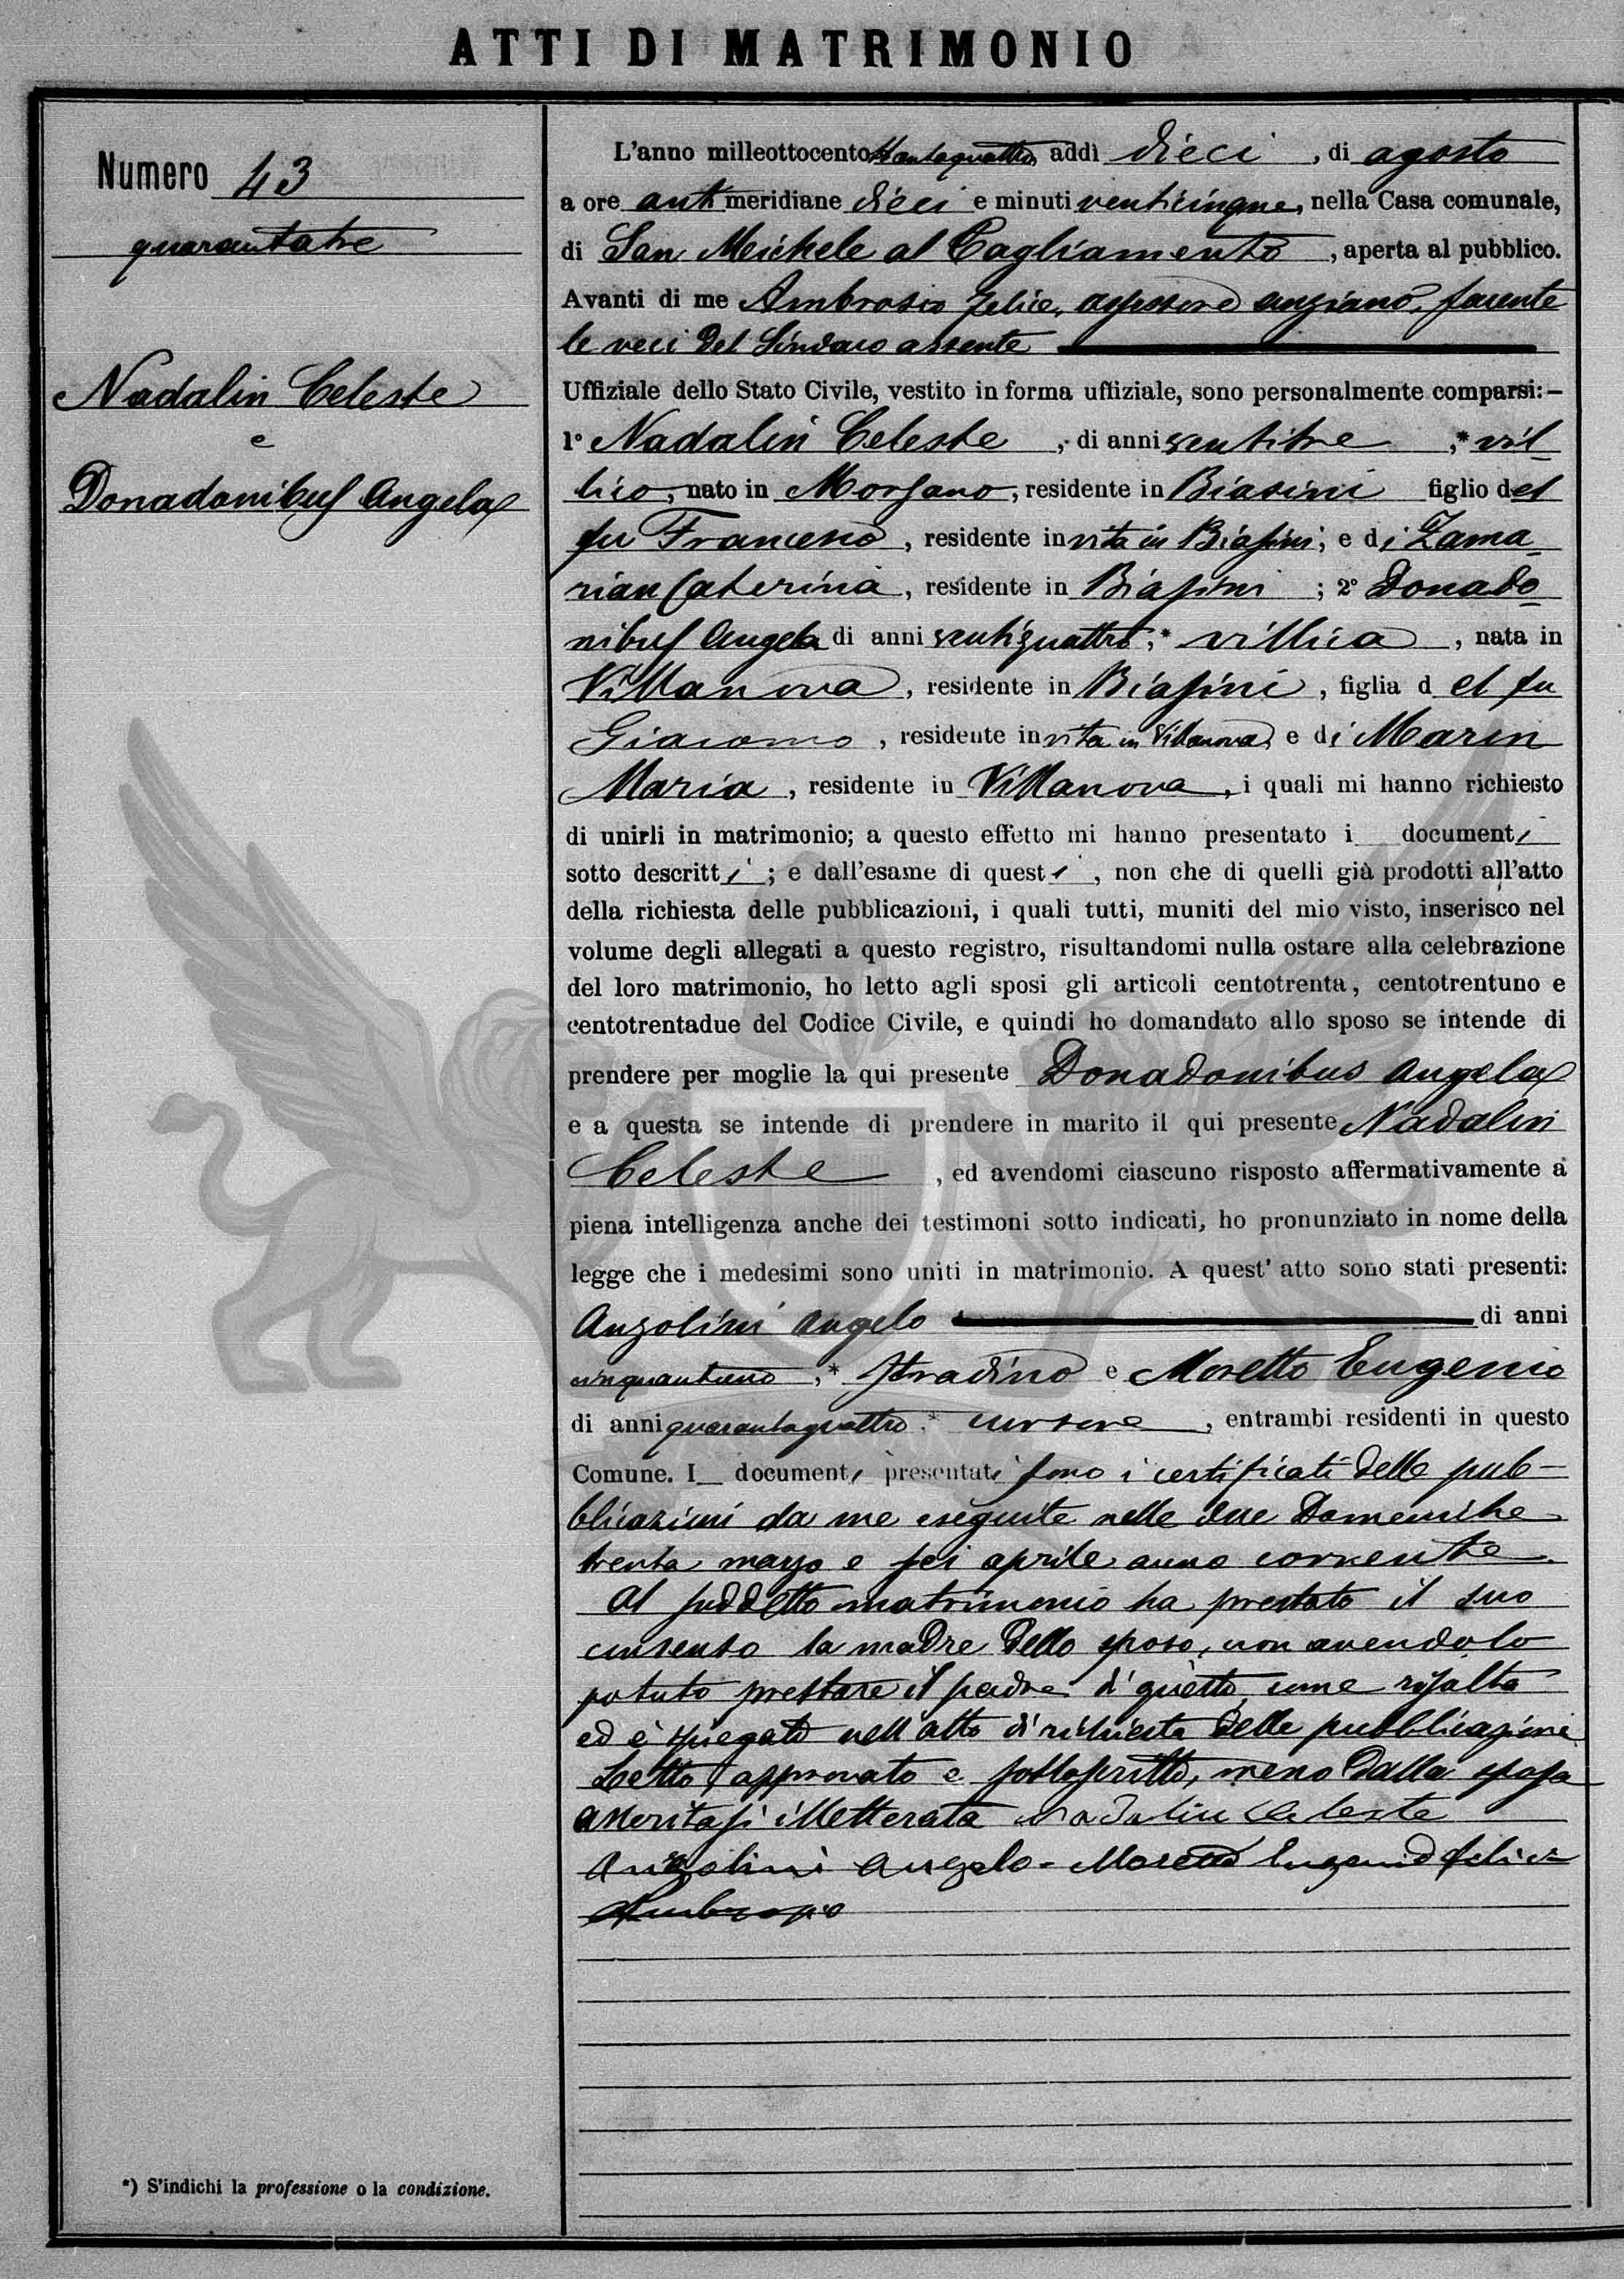 ATTI DI MATRIMONIO
Numero 43
quarantatre
Nadalin Celeste
e
Donadonibus Angela
*) S'indichi la professione o la condizione.
L'anno milleottocento ottantaquattro, addì dieci, di agosto
a ore anti meridiane dieci e minuti venticinque, nella Casa comunale,
di San Michele al Tagliamento, aperta al pubblico.
Avanti di me Ambrosio Felice, assessore anziano, facente
le veci del Sindaco assente
Uffiziale dello Stato Civile, vestito in forma uffiziale, sono personalmente comparsi: –
1° Nadalin Celeste, di anni ventitre, * vil-
lico, nato in Morsano, residente in Biasini figlio del
fu Francesco, residente in vita in Biasini; e di Zama-
rian Caterina, residente in Biasini; 2° Donado-
nibus Angela di anni ventiquattro, * villica, nata in
Villanova, residente in Biasini, figlia del fu
Giacomo, residente in vita in Villanova, e di Marin
Maria, residente in Villanova, i quali mi hanno richiesto
di unirli in matrimonio; a questo effetto mi hanno presentato i documenti
sotto descritti; e dall'esame di questi, non che di quelli già prodotti all'atto
della richiesta delle pubblicazioni, i quali tutti, muniti del mio visto, inserisco nel
volume degli allegati a questo registro, risultandomi nulla ostare alla celebrazione
del loro matrimonio, ho letto agli sposi gli articoli centotrenta, centotrentuno e
centotrentadue del Codice Civile, e quindi ho domandato allo sposo se intende di
prendere per moglie la qui presente Donadonibus Angela
e a questa se intende di prendere in marito il qui presente Nadalin
Celeste, ed avendomi ciascuno risposto affermativamente a
piena intelligenza anche dei testimoni sotto indicati, ho pronunziato in nome della
legge che i medesimi sono uniti in matrimonio. A quest' atto sono stati presenti:
Anzolini Angelo di anni
cinquantuno, * stradino e Moretto Eugenio
di anni quarantaquattro, * cursore, entrambi residenti in questo
Comune. I documenti presentati sono i certificati delle pub-
blicazioni da me eseguite nelle due Domeniche
trenta marzo e sei aprile anno corrente.
Al suddetto matrimonio ha prestato il suo
consenso la madre dello sposo, non avendolo
potuto prestare il padre di questo, come risulta
ed è spiegato nell'atto di richiesta delle pubblicazioni
Letto, approvato e sottoscritto, meno dalla sposa
asseritasi illetterata Nadalin Celeste
Anzolini Angelo - Moretto Eugenio Felice
Ambrosio